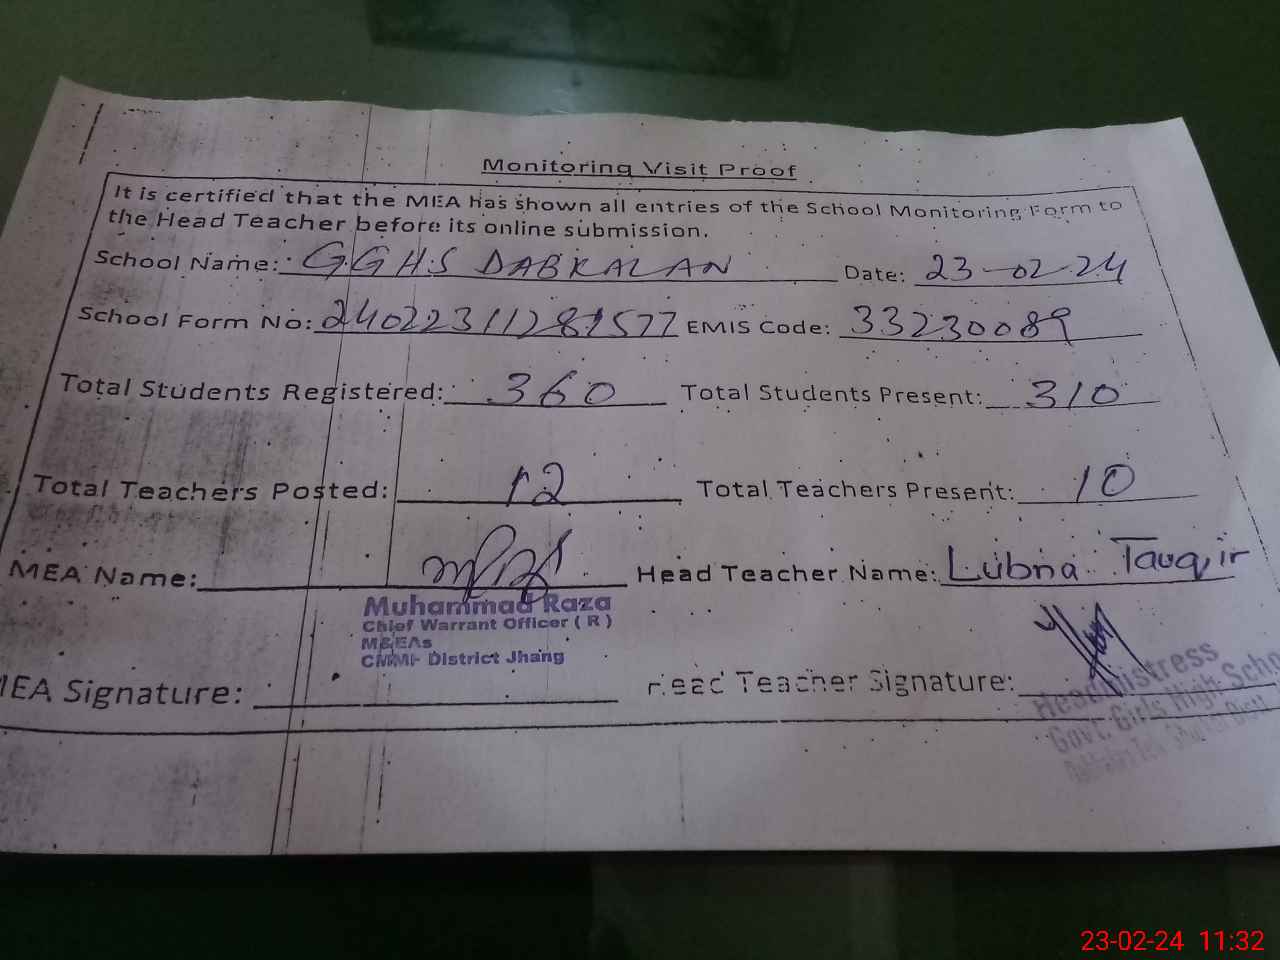 Monitoring Visit Proof
It is certified that the MEA has shown all entries of the School Monitoring Form to
the Head Teacher before its online submission.
School Name: GGHS DABKALAN Date: 23-02-24
School Form No: EMIS Code: 33230089
Total Students Registered: 360 Total Students Present: 310
Total Teachers Posted: 12 Total Teachers Present: 10
MEA Name: Head Teacher Name: Lubna Tauqir
Muhammad Raza
Chief Warrant Officer ( R )
M&EAs
CMMF District Jhang
MEA Signature: Head Teacher Signature:
Headmistress
Govt. Girls High School
23-02-24 11:32